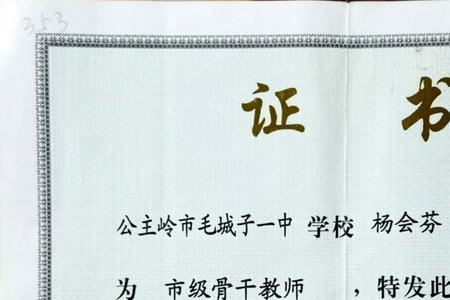 353
证书
公主岭市毛城子一中 学校 杨会芬
为 市级骨干教师 ，特发此